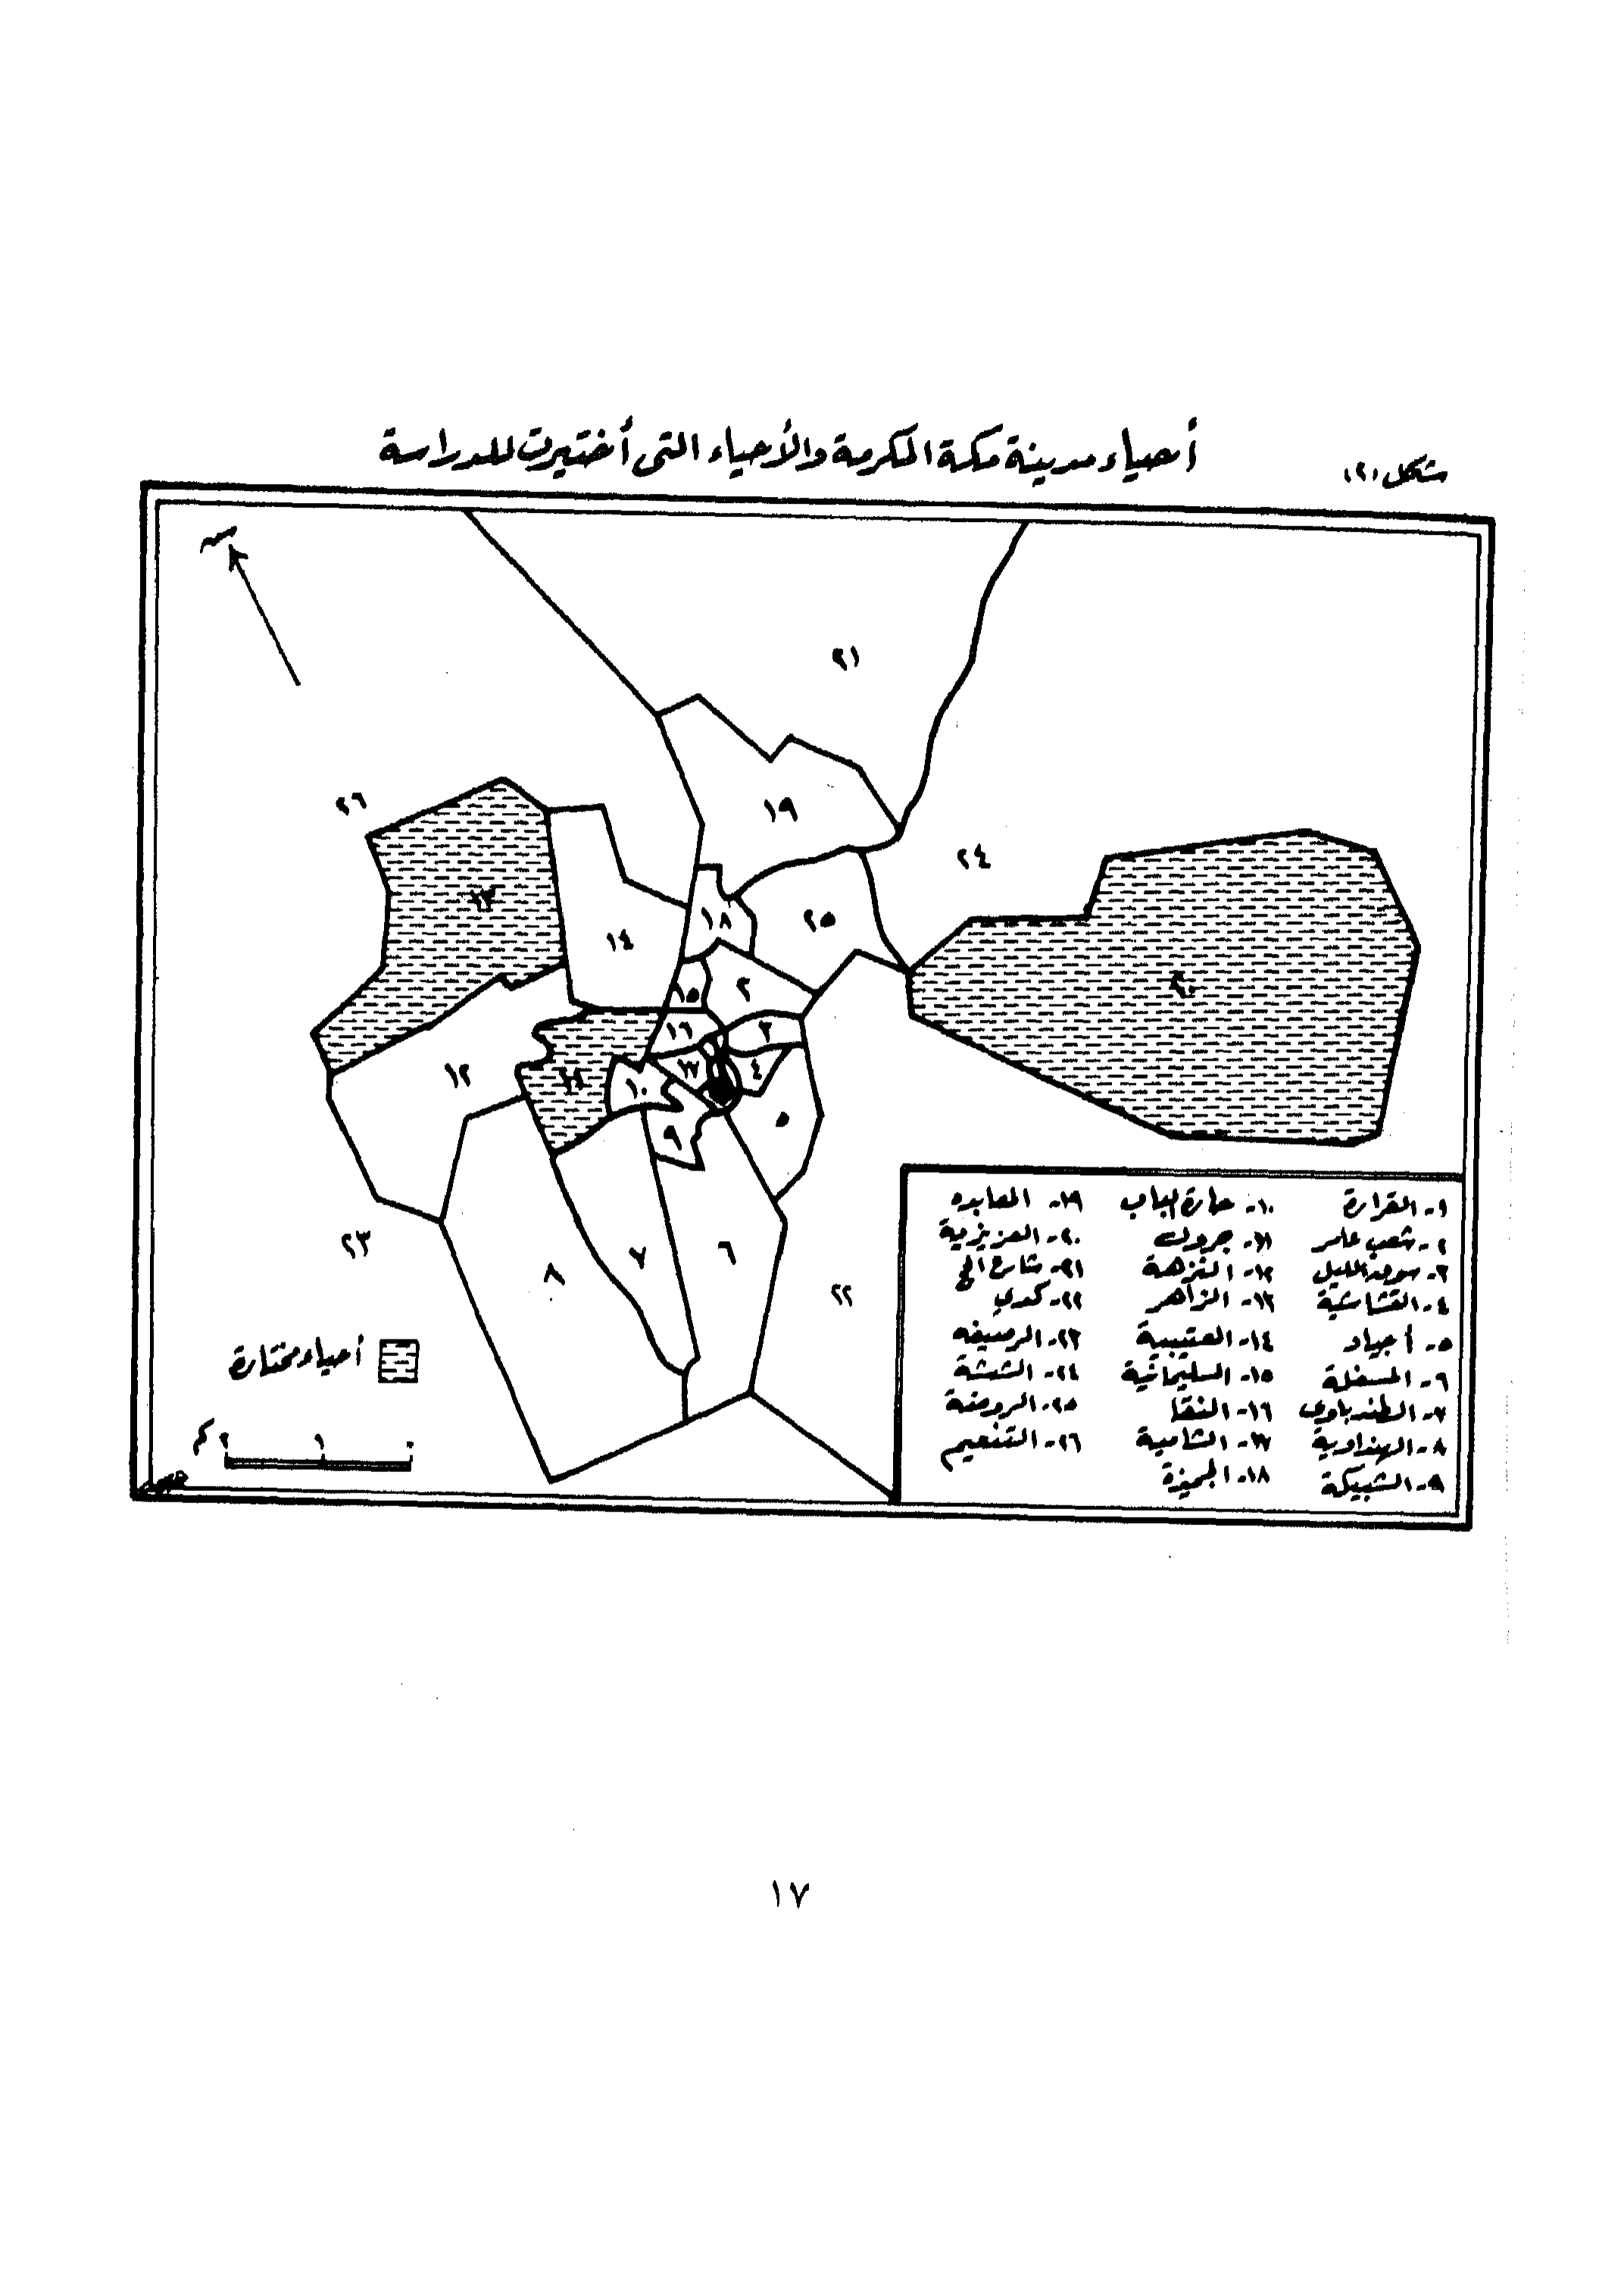 شكل (٢)
أحياء مدينة مكة المكرمة والأحياء التى أختيرت للدراسة
٢١
٢٦
١٩
٢٤
١٣
١٨
٢٥
١٤
٢٠
١٥
٢
١٦
٣
١٢
١١
١٠
١٧
٤
٩
٥
٢٣
٨
٧
٦
٢٢
١- القرارة
٢- شعب عامر
٣- سوق الليل
٤- القشاشية
٥- أجياد
٦- المسفلة
٧- الطندباوى
٨- الهنداوية
٩- الشبيكة
١٠- حارة الباب
١١- جرول
١٢- النزهة
١٣- الزاهر
١٤- العتيبية
١٥- السليمانية
١٦- النقا
١٧- الشامية
١٨- الجميزة
١٩- المعابده
٢٠- العزيزية
٢١- شارع الحج
٢٢- كدي
٢٣- الرصيفه
٢٤- الششة
٢٥- الروضة
٢٦- التنعيم
أحياء مختارة
٠ ١ ٢ كم
١٧